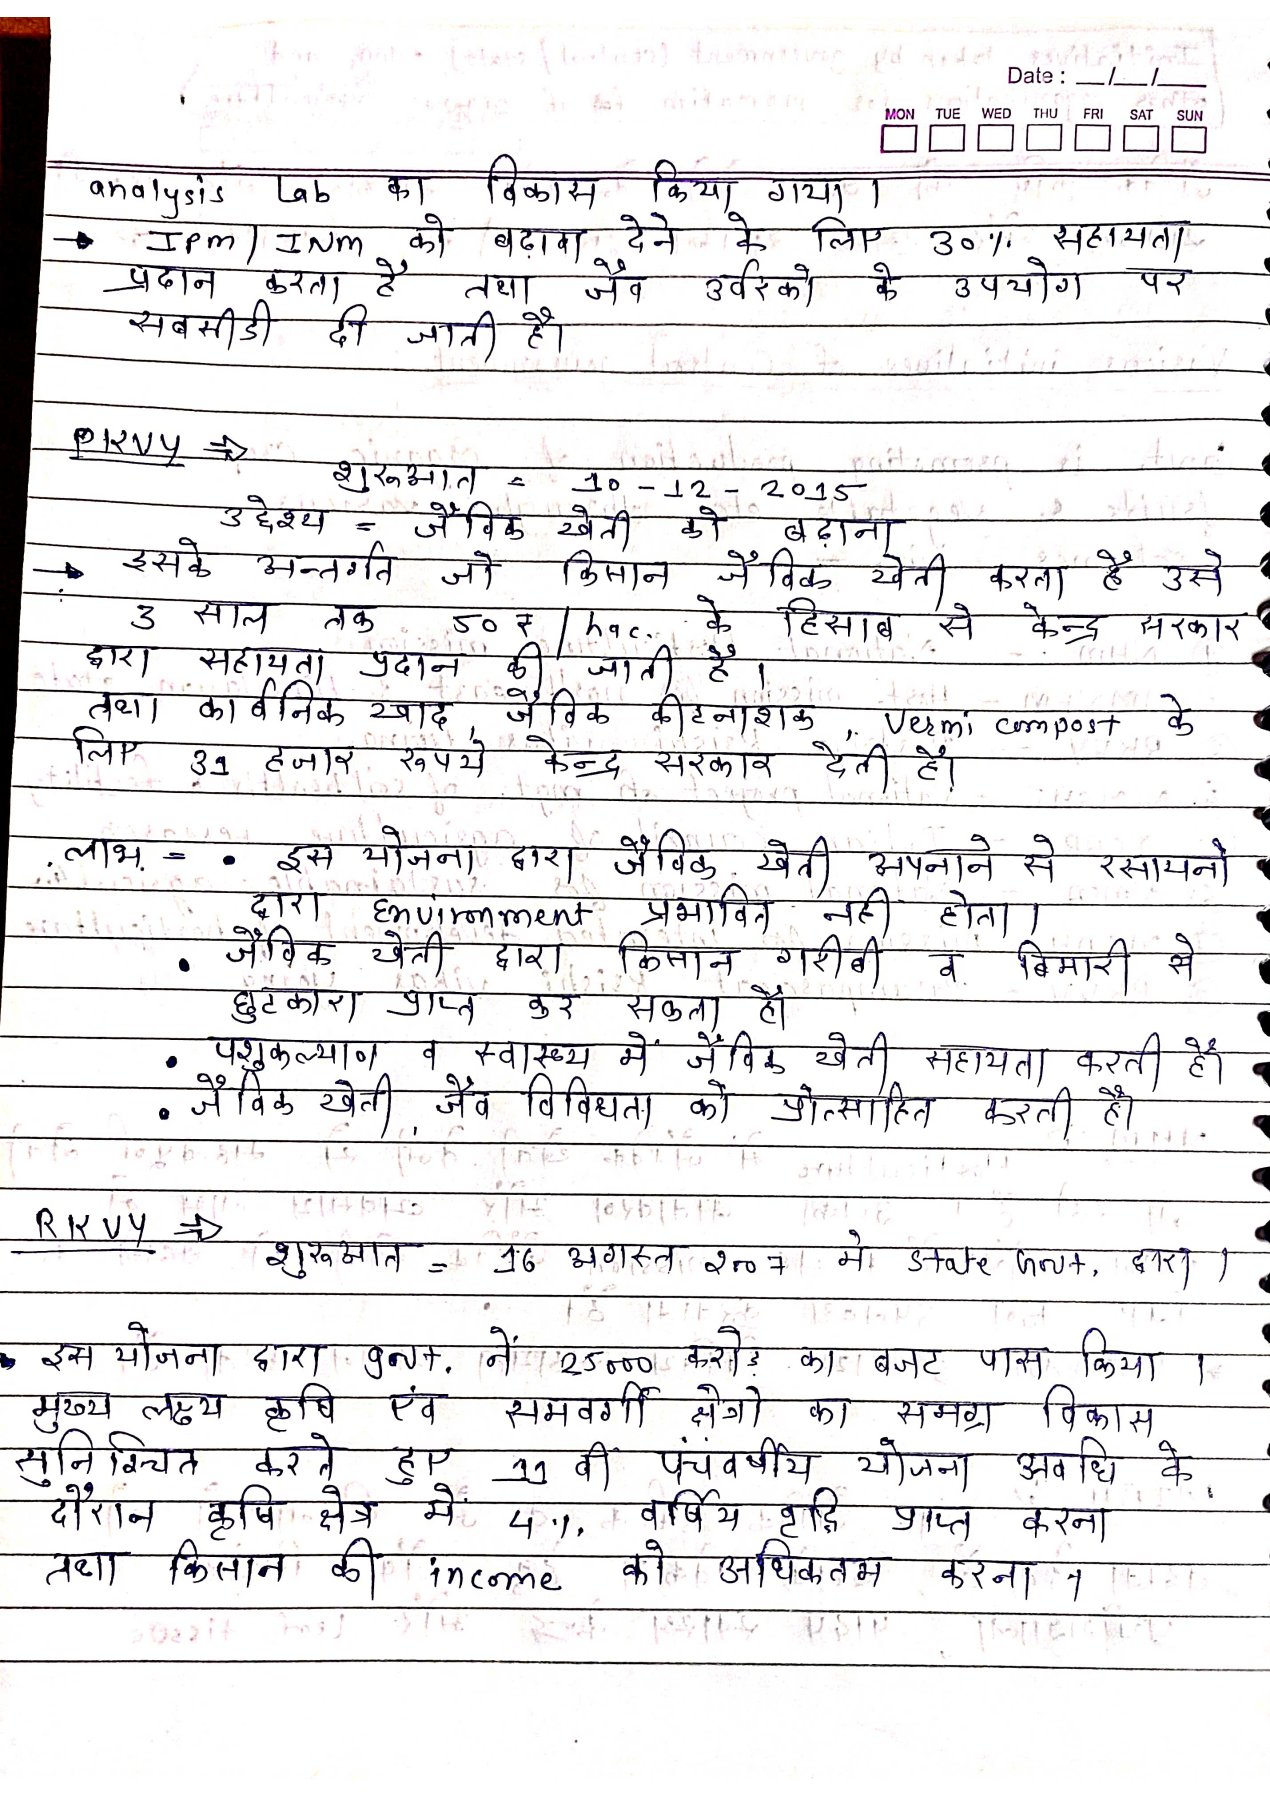 Date : __/__/__
MON TUE WED THU FRI SAT SUN
analysis Lab का विकास किया गया।
→ IPM/INM को बढ़ावा देने के लिए 30% सहायता
प्रदान करता है तथा जैव उर्वरको के उपयोग पर
सबसीडी दी जाती है।
PKVY ⇒
शुरूआत = 10-12-2015
उद्देश्य = जैविक खेती को बढ़ाना
→ इसके अन्तर्गत जो किसान जैविक खेती करता है उसे
3 साल तक 50 ₹/hac. के हिसाब से केन्द्र सरकार
द्वारा सहायता प्रदान की जाती है।
तथा कार्बनिक खाद, जैविक कीटनाशक, Vermi compost के
लिए 31 हजार रूपये केन्द्र सरकार देती है।
लाभ = • इस योजना द्वारा जैविक खेती अपनाने से रसायनो
द्वारा Environment प्रभावित नही होता।
• जैविक खेती द्वारा किसान गरीबी व बिमारी से
छुटकारा प्राप्त कर सकता है।
• पशुकल्याण व स्वास्थ्य में जैविक खेती सहायता करती है।
• जैविक खेती जैव विविधता को प्रोत्साहित करती है।
RKVY ⇒
शुरूआत = 16 अगस्त 2007 मे state Govt. द्वारा।
• इस योजना द्वारा govt. नें 25000 करोड़ का बजट पास किया।
मुख्य लक्ष्य कृषि एंव समवर्गी क्षेत्रो का समग्र विकास
सुनिश्चित करते हुए 11 वी पंचवर्षीय योजना अवधि के
दौरान कृषि क्षेत्र मे 4% वर्षिय वृद्धि प्राप्त करना
तथा किसान की income को अधिकतम करना।